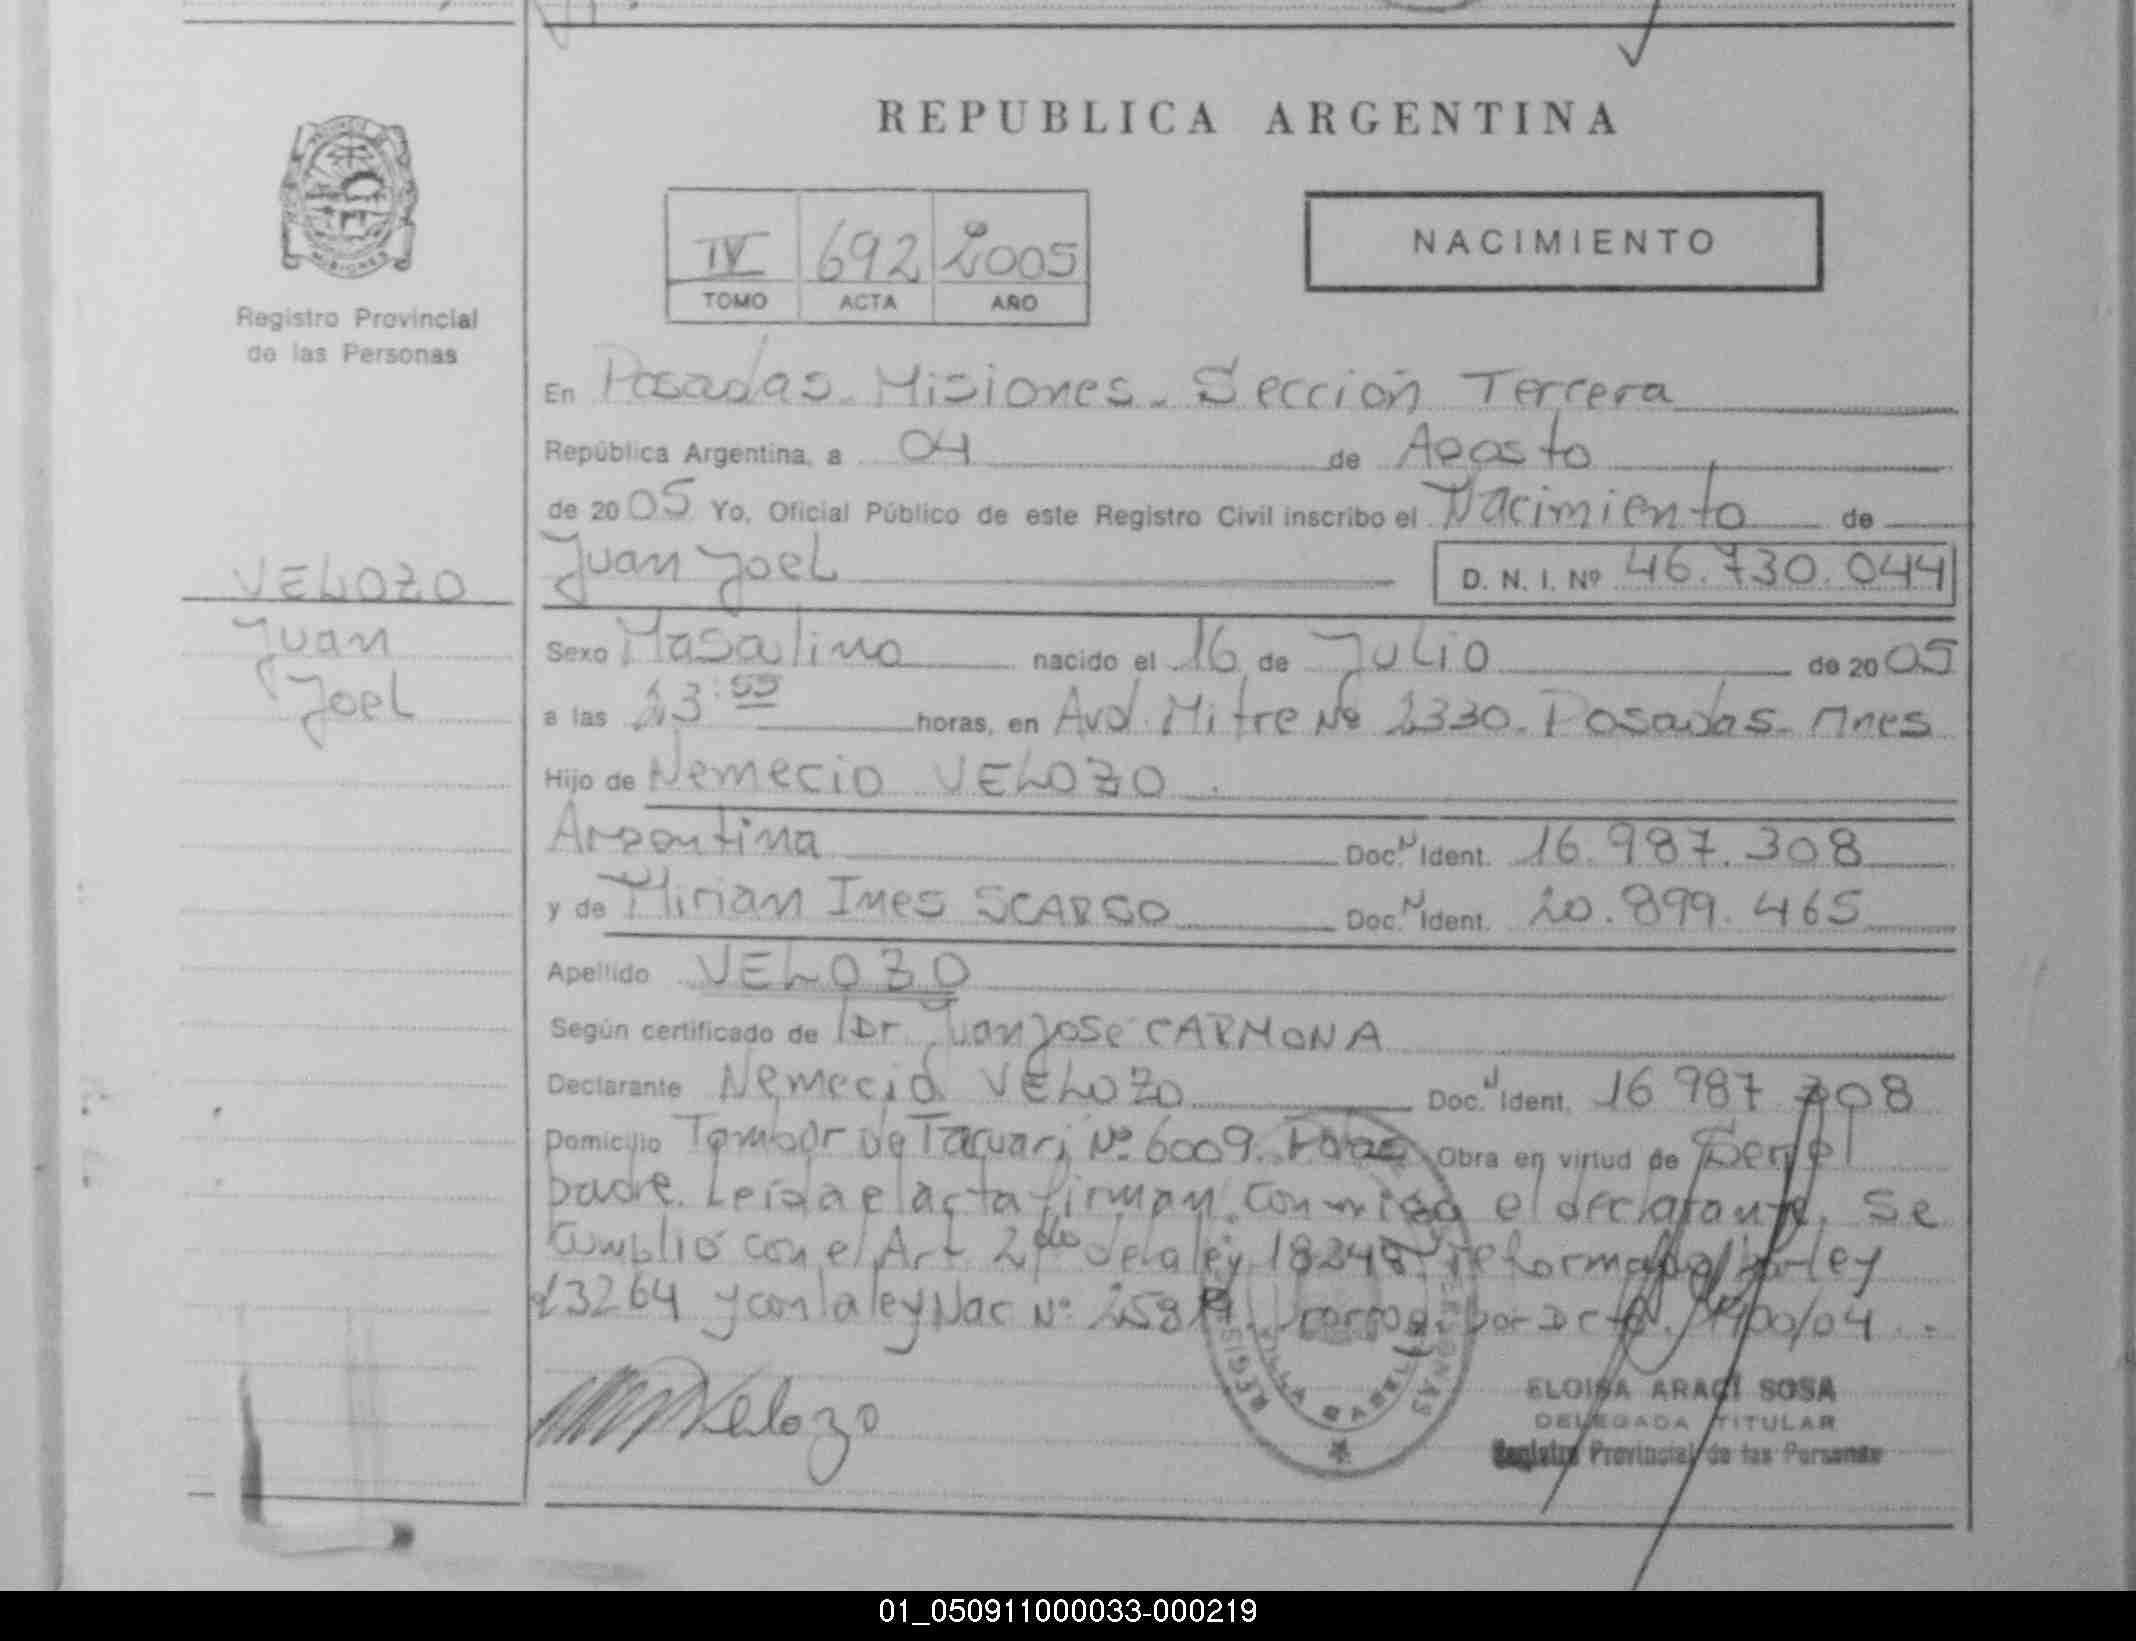 REPUBLICA ARGENTINA
IV 692 2005
TOMO ACTA AÑO
NACIMIENTO
Registro Provincial
de las Personas
VELOZO
Juan
Joel
En Posadas - Misiones - Sección Tercera
República Argentina, a 04 de Agosto
de 2005 Yo, Oficial Público de este Registro Civil inscribo el Nacimiento de
Juan Joel D. N. I. Nº 46.730.044
Sexo Masculino nacido el 16 de Julio de 2005
a las 23:55 horas, en Avd. Mitre Nº 2330. Posadas - Mnes
Hijo de Nemecio VELOZO
Argentina Doc. N Ident. 16.987.308
y de Mirian Ines SCARSO Doc. N Ident. 20.899.465
Apellido VELOZO
Según certificado de Dr. Juan Jose CARMONA
Declarante Nemecio VELOZO Doc. N Ident. 16 987 308
Domicilio Tambor de Tacuari Nº 6009. Pdas Obra en virtud de Ser el
padre. Leida el acta firman conmigo el declarante. Se
Cumplió con el Art 2do de la ley 18248 reformada por ley
23264 y con la ley Nac Nº 25819. Prorrog. por Dcto.
Velozo
VILLA CABELLO
ELOISA ARACI SOSA
DELEGADA TITULAR
Registro Provincial de las Personas
01_050911000033-000219